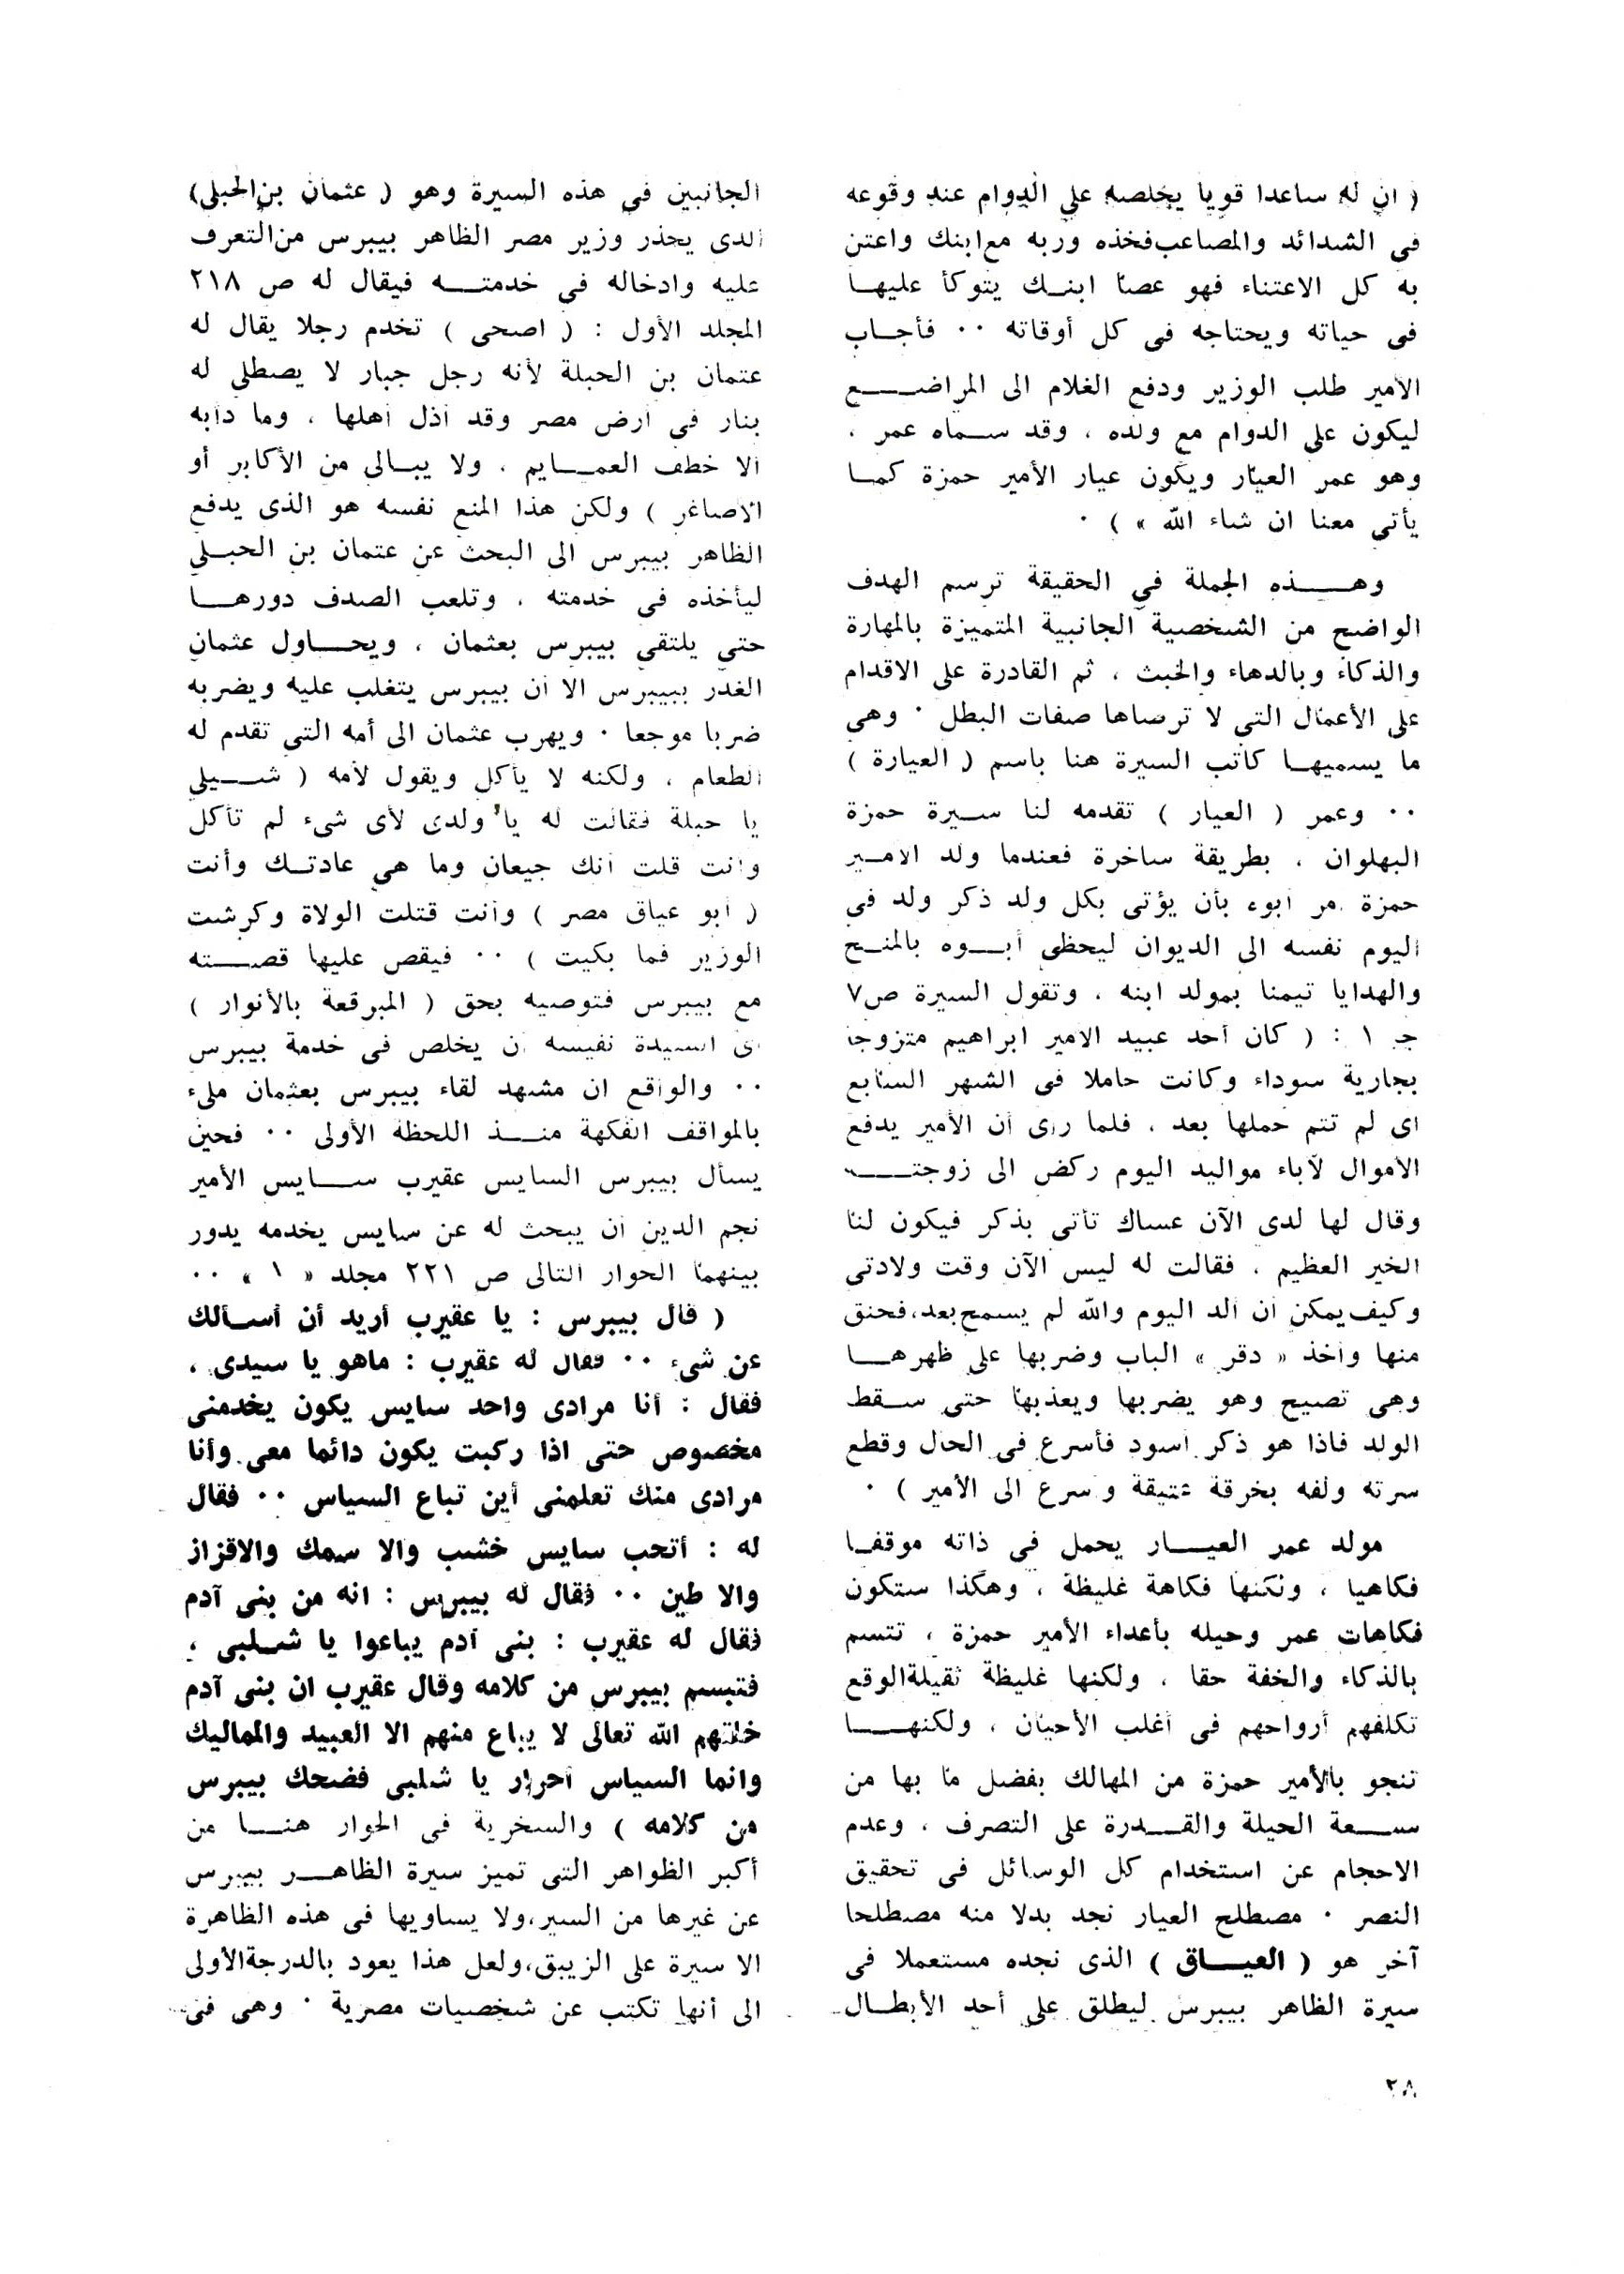 ( ان له ساعدا قويا يخلصه على الدوام عند وقوعه
فى الشدائد والمصاعب فخذه وربه مع ابنك واعتن
به كل الاعتناء فهو عصا ابنـك يتوكأ عليهـا
فى حياته ويحتاجه فى كل أوقاته ٠٠ فأجـاب
الأمير طلب الوزير ودفع الغلام الى المراضـــع
ليكون على الدوام مع ولده ، وقد سـماه عمر ،
وهو عمر العيار ويكون عيار الأمير حمزة كمـا
يأتى معنا ان شاء الله » ) ٠
وهـــذه الجملة في الحقيقة ترسم الهدف
الواضح من الشخصية الجانبية المتميزة بالمهارة
والذكاء وبالدهاء والخبث ، ثم القادرة على الاقدام
على الأعمال التي لا ترضاها صفات البطل ٠ وهي
ما يسميهـا كاتب السيرة هنا باسم ( العيارة )
٠٠ وعمر ( العيار ) تقدمه لنا سـيرة حمزة
البهلوان ، بطريقة ساخرة فعندما ولد الامـير
حمزة أمر أبوه بأن يؤتى بكل ولد ذكر ولد فى
اليوم نفسه الى الديوان ليحظى أبـوه بالمنـح
والهدايا تيمنا بمولد ابنه ، وتقول السيرة ص٧
جـ ١ : ( كان أحد عبيد الامير ابراهيم متزوجا
بجارية سوداء وكانت حاملا فى الشهر السابع
أى لم تتم حملها بعد ، فلما رأى أن الأمير يدفع
الأموال لآباء مواليد اليوم ركض الى زوجتـــه
وقال لها لدى الآن عساك تأتى بذكر فيكون لنا
الخير العظيم ، فقالت له ليس الآن وقت ولادتى
وكيف يمكن أن ألد اليوم والله لم يسمح بعد، فحنق
منها وأخذ « دقر » الباب وضربها على ظهرهـا
وهى تصيح وهو يضربها ويعذبها حتى سـقط
الولد فاذا هو ذكر أسود فأسرع فى الحال وقطع
سرته ولفه بخرقة عتيقة وأسرع الى الأمير ) ٠
مولد عمر العيـــار يحمل فى ذاته موقفـا
فكاهيا ، ولكنها فكاهة غليظة ، وهكذا ستكون
فكاهات عمر وحيله بأعداء الأمير حمزة ، تتسم
بالذكاء والخفة حقا ، ولكنها غليظة ثقيلة الوقع
تكلفهم أرواحهم فى أغلب الأحيان ، ولكنهـــا
تنجو بالأمير حمزة من المهالك بفضل ما بها من
سـعة الحيلة والقـدرة على التصرف ، وعدم
الاحجام عن استخدام كل الوسائل فى تحقيق
النصر ٠ مصطلح العيار نجد بدلا منه مصطلحا
آخر هو ( العيـــاق ) الذى نجده مستعملا فى
سيرة الظاهر بيبرس ليطلق على أحد الأبطـال
الجانبين في هذه السيرة وهو ( عثمان بن الحبلى )
الذى يحذر وزير مصر الظاهر بيبرس من التعرف
عليه وادخاله في خدمتـــه فيقال له ص ٢١٨
المجلد الأول : ( اصحى ) تخدم رجلا يقال له
عتمان بن الحبلة لأنه رجل جبار لا يصطلى له
بنار فى أرض مصر وقد أذل أهلها ، وما دأبه
الا خطف العمـــايم ، ولا يبـالى من الأكابر أو
الأصاغر ) ولكن هذا المنع نفسه هو الذى يدفع
الظاهر بيبرس الى البحث عن عتمان بن الحبـلى
ليأخذه فى خدمته ، وتلعب الصدف دورهـــا
حتى يلتقي بيبرس بعثمان ، ويحـــاول عثمان
الغدر ببيبرس الا أن بيبرس يتغلب عليه ويضربه
ضربا موجعا ٠ ويهرب عثمان الى أمه التى تقدم له
الطعام ، ولكنه لا يأكل ويقول لأمه ( شـــيلي
يا حبلة فقالت له يا ولدى لأى شىء لم تأكل
وأنت قلت أنك جيعان وما هى عادتـك وأنت
( أبو عياق مصر ) وأنت قتلت الولاة وكرشت
الوزير فما بكيت ) ٠٠ فيقص عليها قصـــته
مع بيبرس فتوصيه بحق ( المبرقعة بالأنوار )
أى السيدة نفيسه أن يخلص فى خدمة بيبرس
٠٠ والواقع ان مشهد لقاء بيبرس بعثمان ملىء
بالمواقف الفكهة منـــذ اللحظة الأولى ٠٠ فحين
يسأل بيبرس السايس عقيرب ســـايس الأمير
نجم الدين أن يبحث له عن سايس يخدمه يدور
بينهما الحوار التالى ص ٢٢١ مجلد « ١ » ٠٠
( قال بيبرس : يا عقيرب أريد أن أسـالك
عن شىء ٠٠ فقال له عقيرب : ماهو يا سيدى ،
فقال : أنا مرادى واحد سايس يكون يخدمنى
مخصوص حتى اذا ركبت يكون دائما معى وأنا
مرادى منك تعلمنى أين تباع السياس ٠٠ فقال
له : أتحب سايس خشب والا سمك والاقزاز
والا طين ٠٠ فقال له بيبرس : انه من بنى آدم
فقال له عقيرب : بنى آدم يباعوا يا شـلبى ،
فتبسم بيبرس من كلامه وقال عقيرب ان بنى آدم
خلقهم الله تعالى لا يباع منهم الا العبيد والمماليك
وانما السياس أحرار يا شلبى فضحك بيبرس
من كلامه ) والسخرية فى الحوار هنـــا من
أكبر الظواهر التى تميز سيرة الظاهـــر بيبرس
عن غيرها من السير، ولا يساويها فى هذه الظاهرة
الا سيرة على الزيبق، ولعل هذا يعود بالدرجة الأولى
الى أنها تكتب عن شخصيات مصرية ٠ وهى فى
٢٨